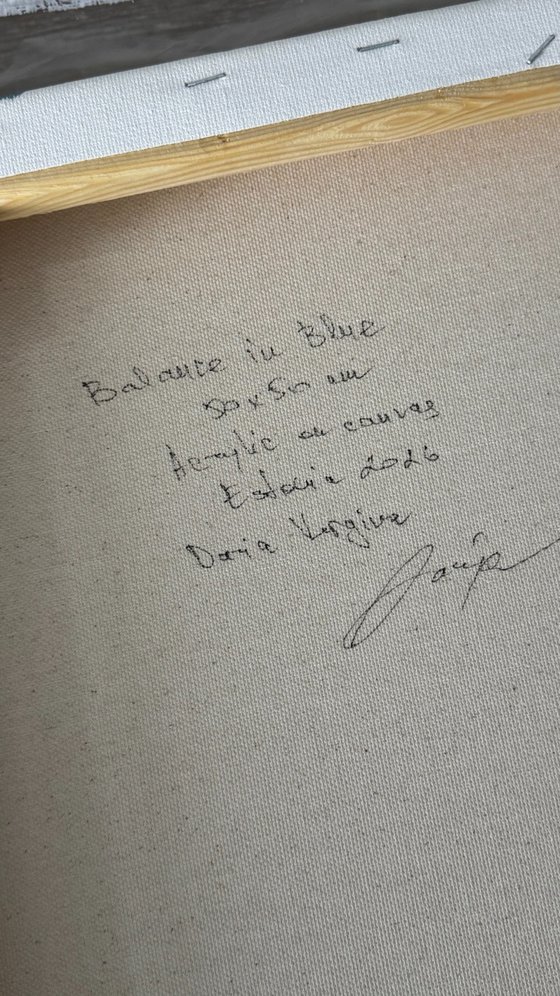 Balance in Blue
50x50 cm
Acrylic on canvas
Estonia 2026
Daria Vergina